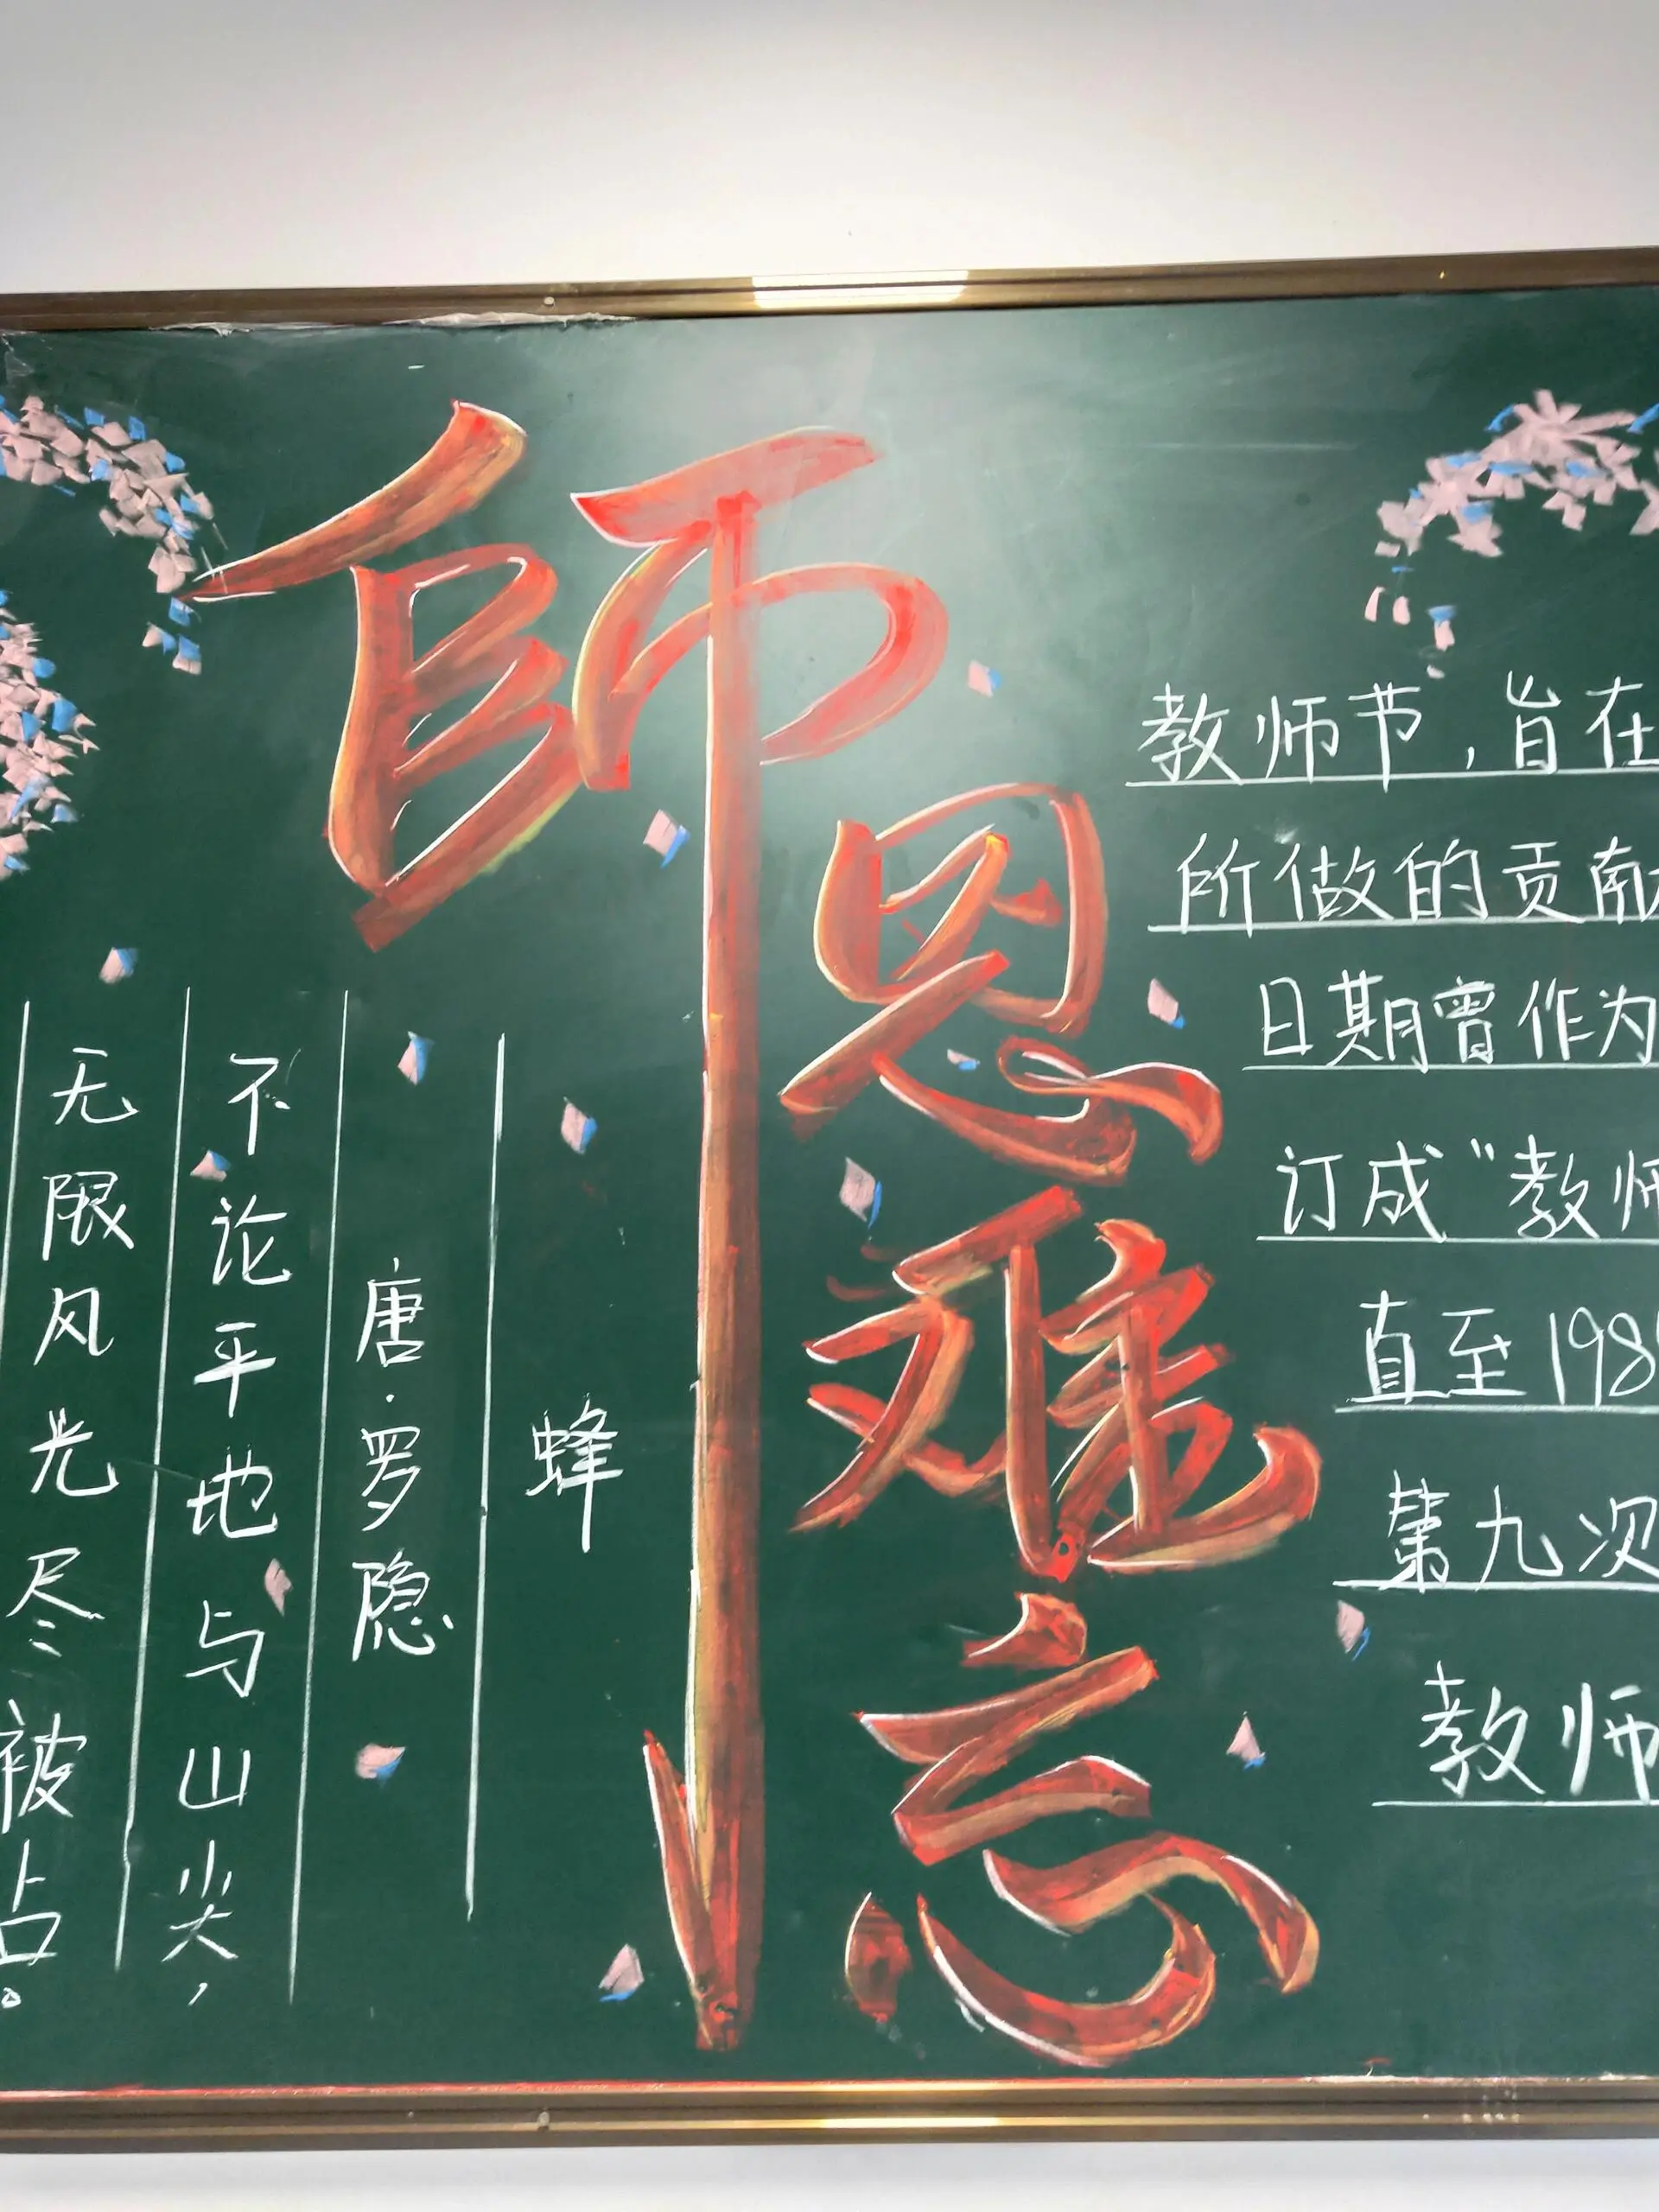 師恩难忘
蜂
唐·罗隐
不论平地与山尖，
无限风光尽被占。
教师节，旨在
所做的贡献
日期曾作为
订成“教师
直至198
第九次
教师